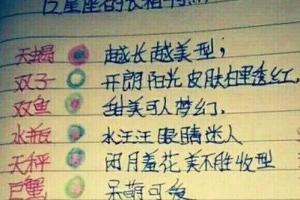 巨星座的长相特点
天蝎 越长越美型；
双子 开朗阳光皮肤白里透红，
双鱼 甜美可人梦幻．
水瓶 水汪汪眼睛迷人
天秤 闭月羞花美不胜收型
巨蟹 呆萌可爱